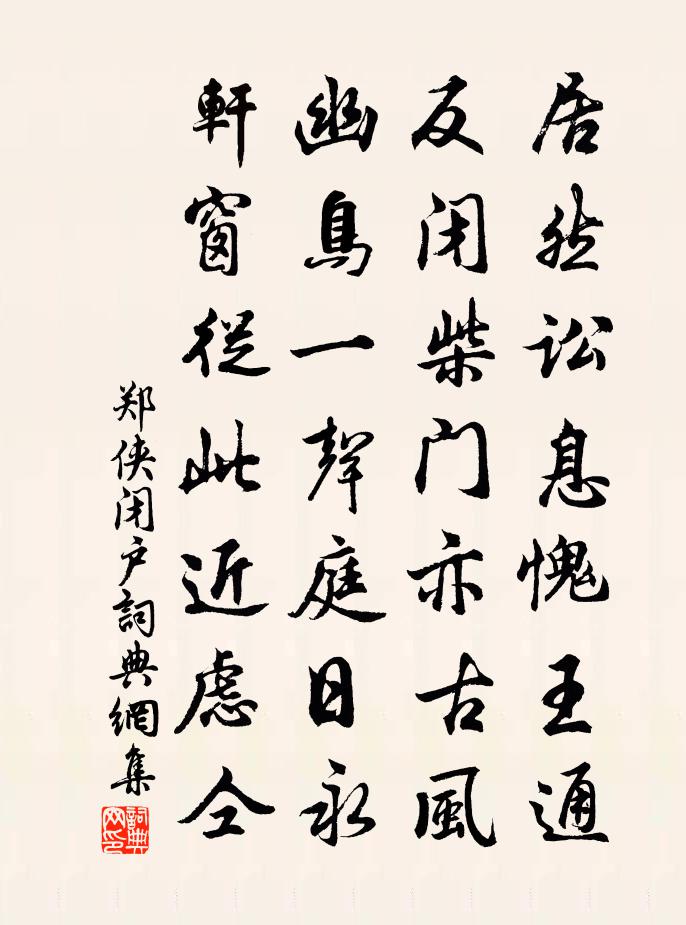 居然訟息愧王通
反闭柴门亦古風
幽鳥一聲庭日永
軒窗從此近虑仝
郑侠闭户詞典網集
詞典网印